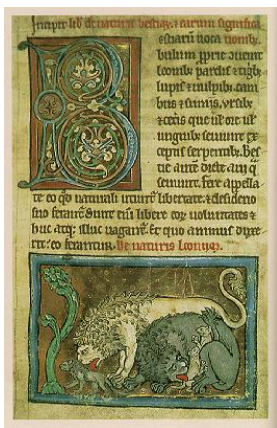 Incipit lib' de naturis bestiaꝝ. ⁊ earum significa
B estiarū uoca tionib'.
bulum ꝓprie ↄuenit
leonib: pardis ⁊ tigb:
lupis ⁊ uulpib: cani
bus ⁊ simijs, ursib:
⁊ ceteris que ł ore uł
unguib: seuiunt ex
ceptis serpentib:. Bes
tie aūt dicte a ui q
seuiunt. Fere appella
te eo qđ naturali utunt libertate ⁊ desiderio
suo ferant. Sunt eī libere eoꝝ uoluntates ⁊
huc atq: illuc uagant. Et quo animus duxe
rit: eo ferunt. De naturis leonum.